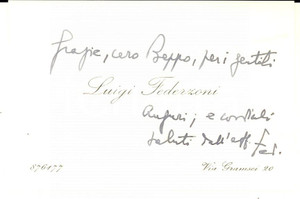 Grazie, caro Beppo, per i gentili
Luigi Federzoni
auguri; e cordiali
saluti dall'aff. Fed.
876177
Via Gramsci 20